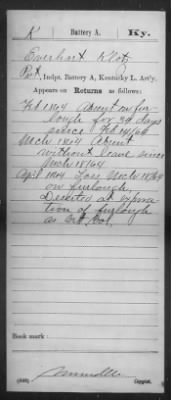 K | Battery A. | Ky.
Everhart Klotz
Pvt, Indpt. Battery A, Kentucky L. Art'y.
Appears on Returns as follows:
Feb 1864 Absent on fur-
lough for 30 days
since Feb 14/64
Mch 1864 Absent
without leave since
Mch 18/64
April 1864 Loss Mch 18/64
on furlough.
Deserted at expira-
tion of furlough
as Vet Vol.
Book mark:
Copyist.